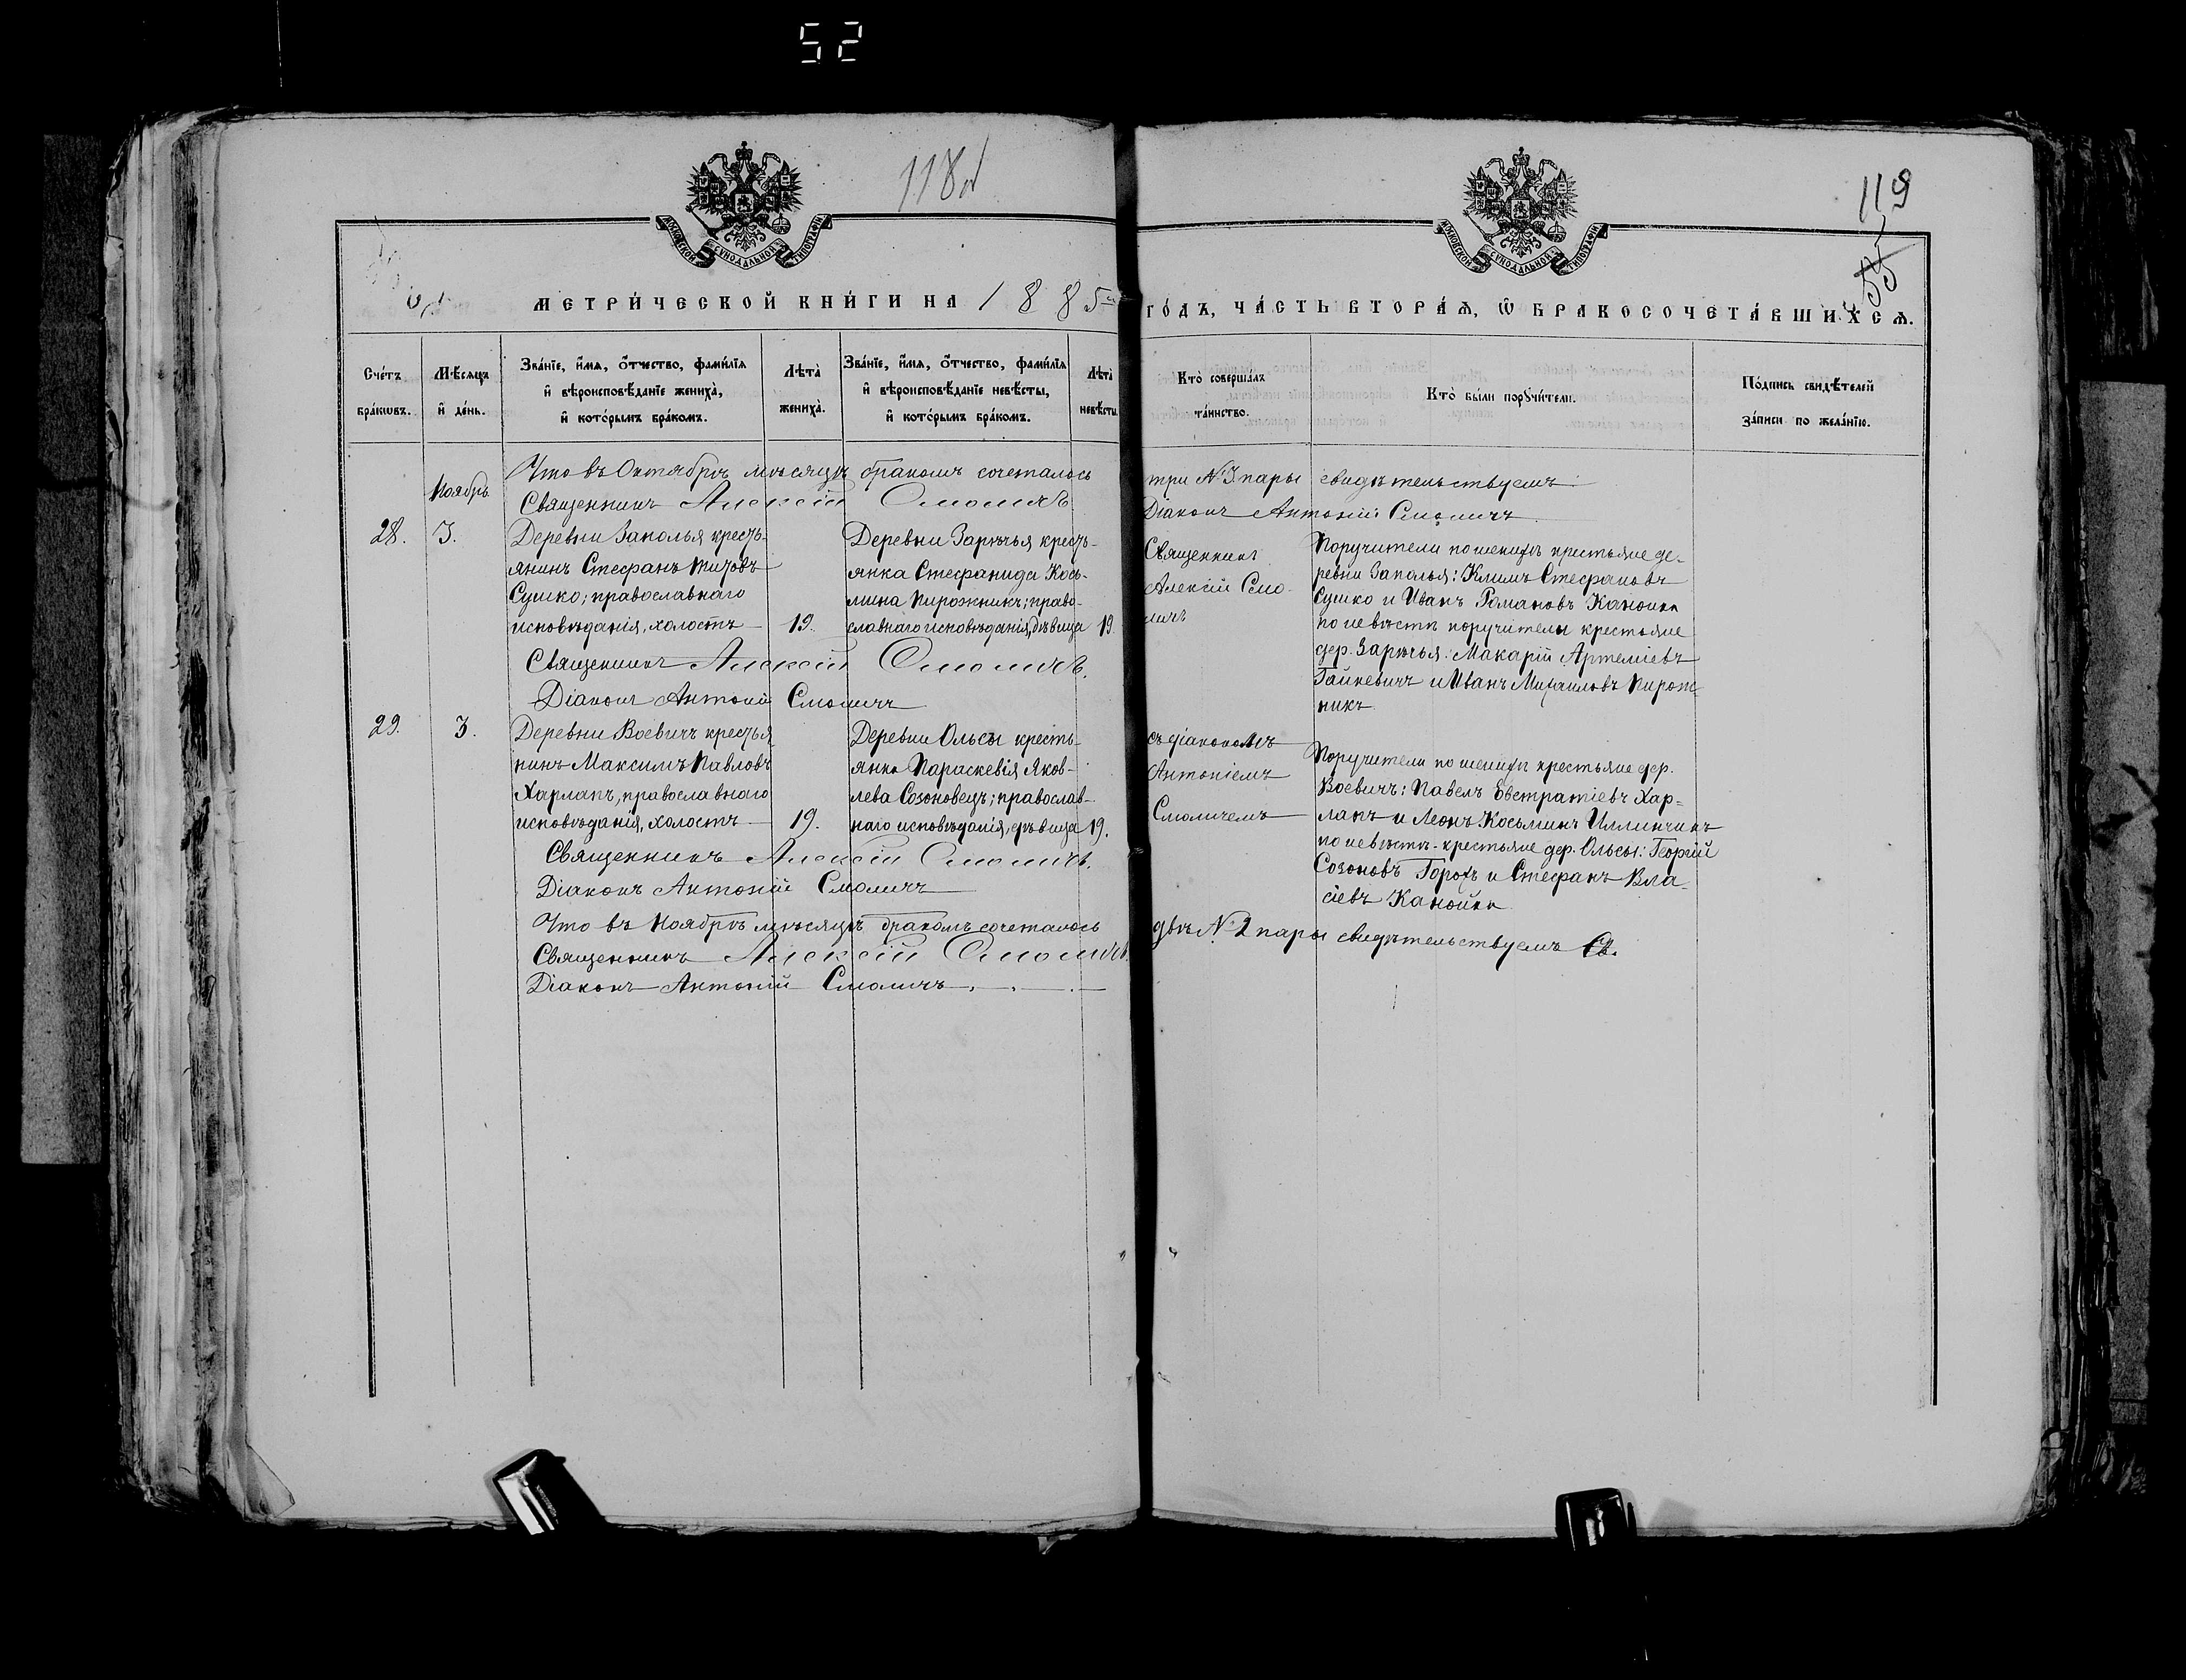 52
118
119
МОСКОВСКОЙ СУНОДАЛЬНОЙ ТИПОГРАФІИ
МОСКОВСКОЙ СУНОДАЛЬНОЙ ТИПОГРАФІИ
МЕТРИ́ЧЕСКОЙ КНИ́ГИ НА 1885 ГО́ДЪ, ЧА́СТЬ ВТОРА́Ѧ, Ѡ҆ БРАКОСОЧЕТА́ВШИХСѦ.
Сче́тъ бра́кѡвъ.
Мѣ́сѧцъ и҆ де́нь.
Зва́нїе, и҆́мѧ, ѻ҆́тчество, фами́лїѧ и҆ вѣроисповѣ́данїе жениха̀, и҆ кото́рымъ бра́комъ.
Лѣта̀ жениха̀.
Зва́нїе, и҆́мѧ, ѻ҆́тчество, фами́лїѧ и҆ вѣроисповѣ́данїе невѣ́сты, и҆ кото́рымъ бра́комъ.
Лѣта̀ невѣ́сты
Кто̀ соверша́лъ та́инство.
Кто̀ бы́ли порꙋчи́тели.
По́дпись свидѣ́телей за́писи по жела́нїю.
Что въ Октябрѣ мѣсяцѣ бракомъ сочеталось три №3. пары свидѣтельствуемъ
Ноябрь
Священникъ Алексій Смоличъ
Діаконъ Антоній Смоличъ
28. 3.
Деревни Заполья кресть-
янинъ Стефанъ Титовъ
Сушко; православнаго
исповѣданія, холостъ
19.
Деревни Зарѣчья кресть-
янка Стефанида Кось-
мина Пирожникъ; право-
славнаго исповѣданія, дѣвица
19.
Священникъ
Алексій Смо-
личъ
Поручители по женихѣ крестьяне де-
ревни Заполья: Климъ Стефановъ
Сушко и Иванъ Романовъ Канойка
по невѣстѣ поручители крестьяне
дер. Зарѣчья: Макарій Артеміевъ
Гайкевичъ и Иванъ Михаиловъ Пирож-
никъ
Священникъ Алексій Смоличъ.
Діаконъ Антоній Смоличъ
29. 3.
Деревни Воевичъ крестья
нинъ Максимъ Павловъ
Харлапъ, православнаго
исповѣданія, холостъ
19.
Деревни Ольсы кресть-
янка Параскевія Яков-
лева Созоновецъ; православ-
наго исповѣданія, дѣвица
19.
съ діакономъ
Антоніемъ
Смоличемъ
Поручители по женихѣ крестьяне дер.
Воевичъ: Павелъ Евстратіевъ Хар-
лапъ и Леонъ Косьминъ Иллинчикъ
по невѣстѣ - крестьяне дер. Ольсы: Георгій
Созоновъ Горохъ и Стефанъ Вла-
сіевъ Канойка
Священникъ Алексій Смоличъ.
Діаконъ Антоній Смоличъ
Что въ Ноябрѣ мѣсяцѣ бракомъ сочеталось двѣ №2 пары свидѣтельствуемъ
Священникъ Алексій Смоличъ.
Діаконъ Антоній Смоличъ